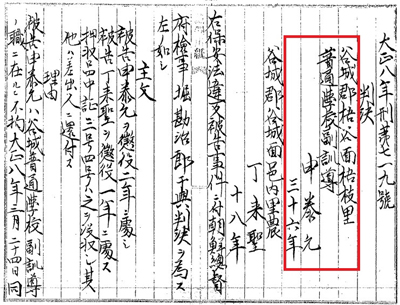 大正八年刑第七一九號
判決
谷城郡梧谷面梧枝里
普通學校副訓導
申泰允
三十六年
谷城郡谷城面邑內里農
丁來聖
十八年
右保安法違反被告事件ニ付朝鮮總督
府檢事堀勘治郎干與判決ヲ為ス
左ノ如シ
主文
被告申泰允ヲ懲役二年ニ處シ
被告丁來聖ヲ懲役一年ニ處ス
押收品中証三号四号ハ之ヲ没收シ其
他ハ差出人ニ還付ス
理由
被告申泰允ハ谷城普通學校副訓導
ノ職ニ在ルニ不拘大正八年三月二十四日同